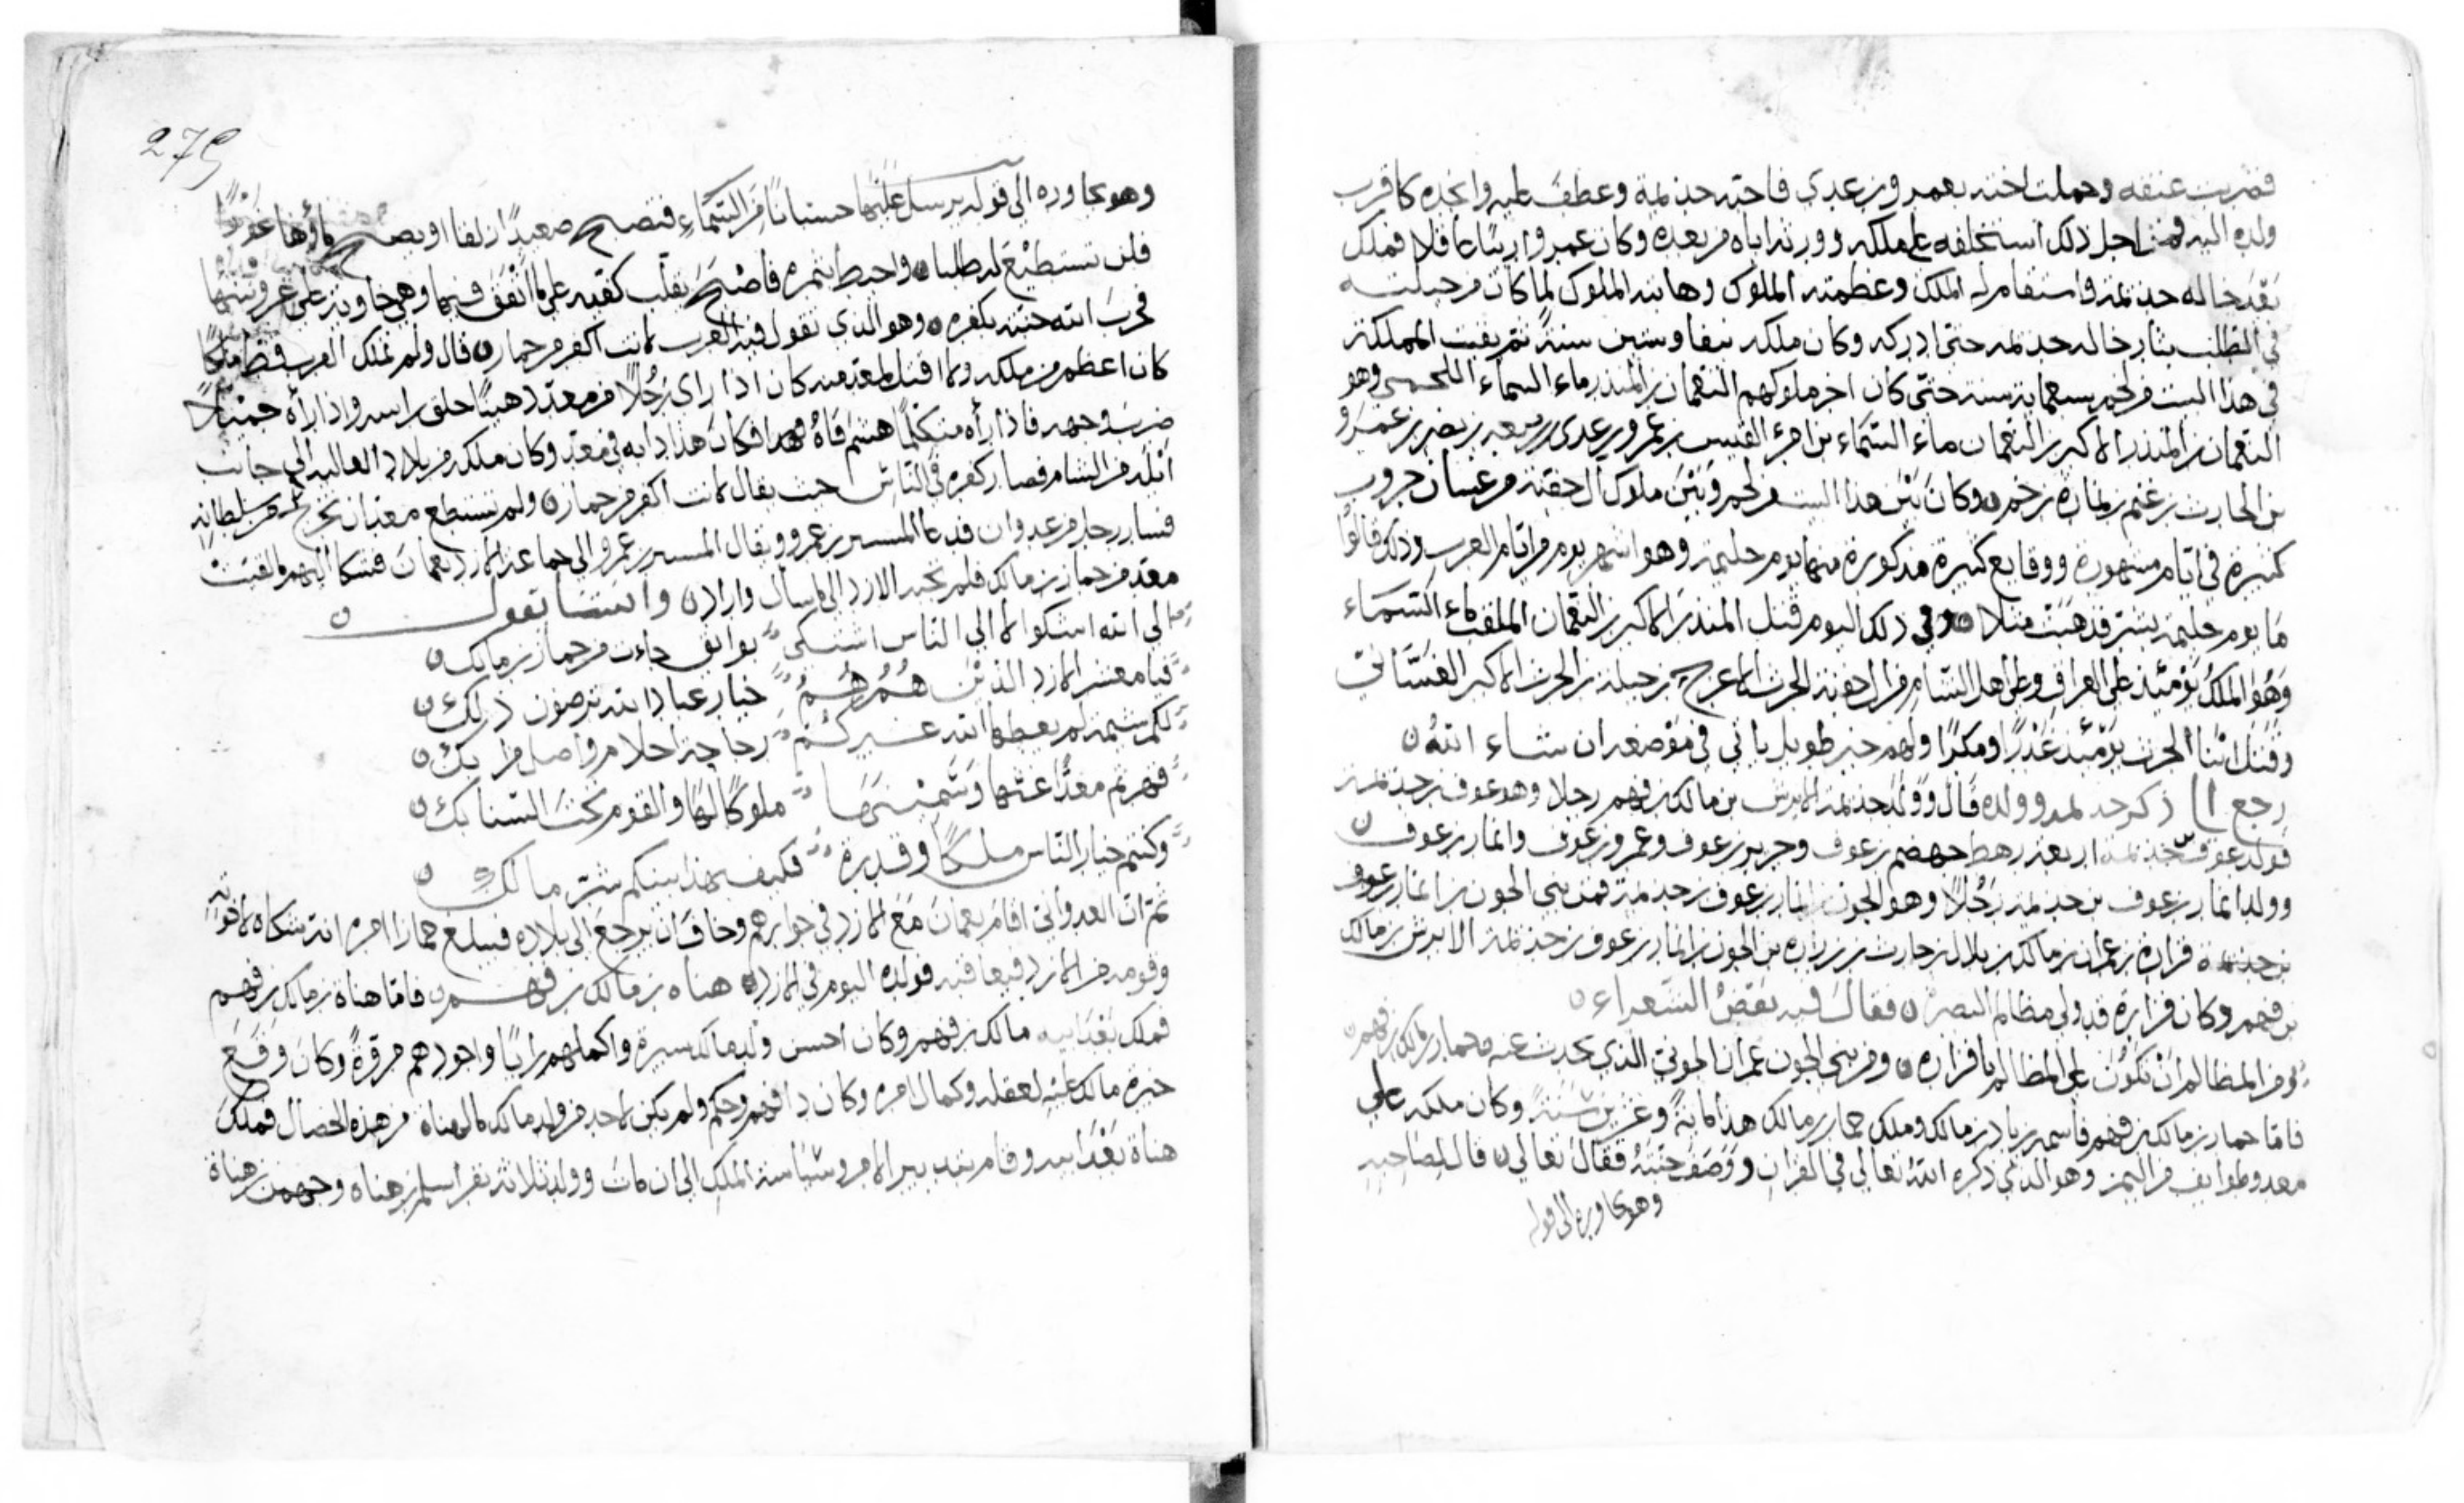 فضربت عنقه وحملت اخته بعمرو بن عدي فاحبه جذيمة وعطف عليه واتخذه كاقرب
ولده اليه فمن اجل ذلك استخلفه على ملكه وورثه اياه من بعده وكان عمرو اريبًا عاقلا فملك
بعد خاله جذيمة واستقام له الملك وعظمته الملوك وهابته الملوك لما كان من حيلته
في الطلب بثار خاله جذيمة حتى ادركه وكان ملكه نيفا وستين سنة ثم بقيت المملكة
في هذا البيت من لخم سبعماية سنة حتى كان اخر ملوكهم النعمان بن المنذر ماء السماء اللخمي وهو
النعمان بن المنذر الاكبر بن النعمان ماء السماء بن امرئ القيس بن عمرو بن عدي بن ربيعه بن نصر بن عمرو
بن الحارث بن غنم بن نماره بن لخم ن وكان بين هذا البيت من لخم وبين ملوك ال جفنة من غسان حروب
كثيرة في ايام مشهورة ووقايع كثيرة مذكورة منها يوم حليمة وهو اشهر يوم من ايام العرب وذلك قالوا
ما يوم حليمة بسر فذهبت مثلا ن وفي ذلك اليوم قتل المنذر الاكبر بن النعمان الملقب ماء السماء
وهو الملك يومئذ على العراق وعلى اهل الشام من ال جفنة الحرث الاعرج بن جبلة بن الحرث الاكبر الغساني
وقتل ابنا الحرث يومئذ غدرًا ومكرًا ولهم خبر طويل ياتي في موضعه ان شاء الله ن
رجع الى ذكر جذيمة وولده قال وولد جذيمة الابرش بن مالك بن فهم رجلا وهو عوف بن جذيمة
فولد عوف بن جذيمة اربعة رهط جهضم بن عوف وجرير بن عوف وعمرو بن عوف وانمار بن عوف ن
وولد انمار بن عوف بن جذيمة رجلًا وهو الجون بن انمار بن عوف بن جذيمة فمن بني الجون بن انمار بن عوف
بن جذيمة فزارة بن عمران بن مالك بن بلال بن حارث بن بن زاره بن الجون بن انمار بن عوف بن جذيمة الابرش بن مالك
بن فهم وكان فزارة قد ولي مظالم البصرة ن فقال فيه بعض الشعراء ن
ومن المظالم ان تكون على المظالم يا فزاره ن ومن بني الجون عمران الجوني الذي يحدث عنه حمار بن مالك بن فهم ن
فاما حمار بن مالك بن فهم فاسمه زياد بن مالك وملك حمار بن مالك هذا ماية وعشرين سنة وكان ملكه على
معد وطوايف من اليمن وهو الذي ذكره الله تعالى في القران ووصف جنته فقال تعالى ن قال لصاحبه
وهو يحاوره الى قوله
وهو يحاوره الى قوله يرسل عليها حسبانًا من السماء فتصبح صعيدًا زلقا او يصبح ماؤها غورًا
فلن تستطيع له طلبا ن واحيط بثمره فاصبح يقلب كفيه على ما انفق فيها وهي خاوية على عروشها
فخرب الله جنته بكفره ن وهو الذي تقول فيه العرب لانت اكفر من حمار ن قال ولم تملك العرب قط ملكًا
كان اعظم من ملكه ولا اقتل لمعد منه كان اذا راى رجلًا من معد دهينًا حلق راسه واذا رأه مختالًا
ضرب وجهه فاذا رأه متكلمًا هشم فاهُ فهذا فكان هذا دابه في معد وكان ملكه من بلاد العالية الى جانب
ايلة من الشام فصار كفره في الناس حيث يقال لانت اكفر من حمار ن ولم تستطع معد ان تخرج من سلطانه
فسار رجل من عدوان فدعا المسير بن عمرو ويقال المسير بن عمرو الى جماعة الازد بعمان فشكا اليهم ما لقيت
معد من حمار بن مالك فلم تجبه الازد الى ما سال واراد ن وانشا يقول ن
الى الله اشكوا لا الى الناس اشتكي بوايق جاءت من حمار بن مالك ن
فيا معشر الازد الذين هُمُ هُمُ خيار عباد الله ترضون ذلك ن
لكم شيمة لم يعطها الله غيركم رجاحة احلام وأصل مرابك ن
فهرتم معدًا عنها وسمتيتها ملوكًا لها والقوم تحت السنابك ن
وكنتم خيار الناس ملكًا وقدرة فكيف بهذا بينكم شر مالك ن
ثم ان العدواني اقام بعمان مع الازد في جوارهم وخاف ان يرجع الى بلاده فيبلغ حمارا امره انه شكاه لاخوته
وقومه من الازد فبقا فيه فولده اليوم في الازد ن هناه بن مالك بن فهم ن فاما هناة بن مالك بن فهم
فملك بعد ابيه مالك بن فهم وكان احسن ولد مالك سيرة واكملهم رايًا واجودهم مروة وكان وقع
خيرة مالك عليه لعقله وكمال امره وكان ذا فهم وحكم ولم يكن لاحد من ولد مالك ما لهناة من هذه الخصال فملك
هناة بعد ابيه وقام بتدبير الامر وسياسة الملك الى ان مات وولد ثلاثة نفر اسلم بن هناه وجهم بن هناة